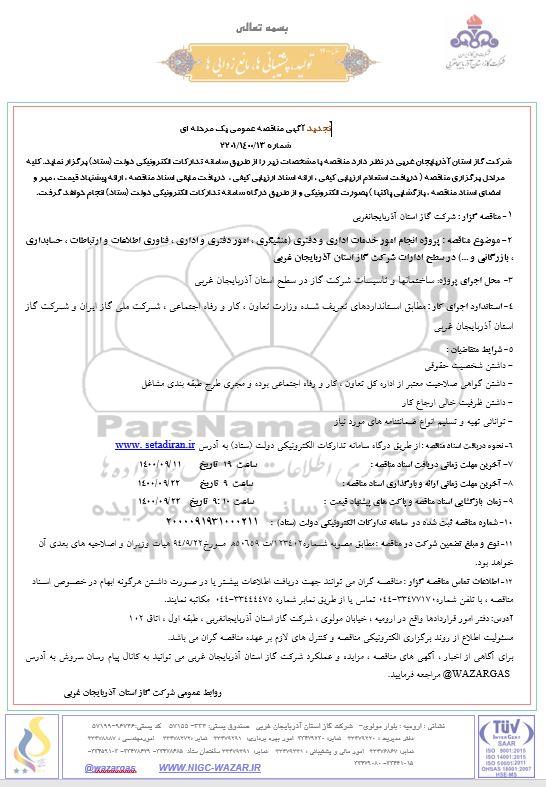 بسمه تعالی
تولید، پشتیبانی ها، مانع زدایی ها
شرکت گاز استان آذربایجانغربی
تجدید آگهی مناقصه عمومی یک مرحله ای
شماره ۲۲۰۱/۱۴۰۰/۱۳
شرکت گاز استان آذربایجان غربی در نظر دارد مناقصه با مشخصات زیر را از طریق سامانه تدارکات الکترونیکی دولت (ستاد) برگزار نماید. کلیه
مراحل برگزاری مناقصه ( دریافت استعلام ارزیابی کیفی ، ارائه اسناد ارزیابی کیفی ، دریافت مابقی اسناد مناقصه ، ارائه پیشنهاد قیمت ، مهر و
امضای اسناد مناقصه ، بازگشایی پاکتها ) بصورت الکترونیکی و از طریق درگاه سامانه تدارکات الکترونیکی دولت (ستاد) انجام خواهد گرفت.
۱- مناقصه گزار : شرکت گاز استان آذربایجانغربی
۲- موضوع مناقصه : پروژه انجام امور خدمات اداری و دفتری (منشیگری ، امور دفتری و اداری ، فناوری اطلاعات و ارتباطات ، حسابداری
، بازرگانی و ...) در سطح ادارات شرکت گاز استان آذربایجان غربی
۳- محل اجرای پروژه: ساختمانها و تاسیسات شرکت گاز در سطح استان آذربایجان غربی
۴- استاندارد اجرای کار : مطابق استانداردهای تعریف شده وزارت تعاون ، کار و رفاه اجتماعی ، شرکت ملی گاز ایران و شرکت گاز
استان آذربایجان غربی
۵- شرایط متقاضیان :
- داشتن شخصیت حقوقی
- داشتن گواهی صلاحیت معتبر از اداره کل تعاون ، کار و رفاه اجتماعی بوده و مجری طرح طبقه بندی مشاغل
- داشتن ظرفیت خالی ارجاع کار
- توانائی تهیه و تسلیم انواع ضمانتنامه های مورد نیاز
۶- نحوه دریافت اسناد مناقصه : از طریق درگاه سامانه تدارکات الکترونیکی دولت (ستاد) به آدرس www. setadiran.ir
۷- آخرین مهلت زمانی دریافت اسناد مناقصه : ساعت ۱۹ تاریخ ۱۴۰۰/۰۹/۱۱
۸- آخرین مهلت زمانی ارائه و بارگذاری اسناد مناقصه : ساعت ۹ تاریخ ۱۴۰۰/۰۹/۲۲
۹- زمان بازگشایی اسناد مناقصه و پاکت های پیشنهاد قیمت : ساعت ۹:۱۰ تاریخ ۱۴۰۰/۰۹/۲۲
۱۰- شماره مناقصه ثبت شده در سامانه تدارکات الکترونیکی دولت (ستاد) : ۲۰۰۰۰۹۱۹۳۱۰۰۰۲۱۱
۱۱- نوع و مبلغ تضمین شرکت در مناقصه : مطابق مصوبه شماره ۱۲۳۴۰۲/ت ۵۰۶۵۹ه مورخ ۹۴/۹/۲۲ هیات وزیران و اصلاحیه های بعدی آن
خواهد بود.
۱۲- اطلاعات تماس مناقصه گزار : مناقصه گران می توانند جهت دریافت اطلاعات بیشتر یا در صورت داشتن هرگونه ابهام در خصوص اسناد
مناقصه ، با تلفن شماره ۳۳۴۷۷۱۷۰-۰۴۴ تماس یا از طریق نمابر شماره ۳۳۴۴۴۴۷۵-۰۴۴ مکاتبه نمایند.
آدرس: دفتر امور قراردادها واقع در ارومیه ، خیابان مولوی ، شرکت گاز استان آذربایجانغربی ، طبقه اول ، اتاق ۱۰۲
مسئولیت اطلاع از روند برگزاری الکترونیکی مناقصه و کنترل های لازم بر عهده مناقصه گران می باشد.
برای آگاهی از اخبار ، آگهی های مناقصه ، مزایده و عملکرد شرکت گاز استان آذربایجان غربی می توانید به کانال پیام رسان سروش به آدرس
@WAZARGAS مراجعه فرمایید.
روابط عمومی شرکت گاز استان آذربایجان غربی
ParsNamadData
نشانی : ارومیه : بلوار مولوی- شرکت گاز استان آذربایجان غربی
@wazargas WWW.NIGC-WAZAR.IR
TÜV
INTERCERT
SAAR
ISO 9001:2015
ISO 14001:2015
OHSAS 18001:2007
HSE-MS